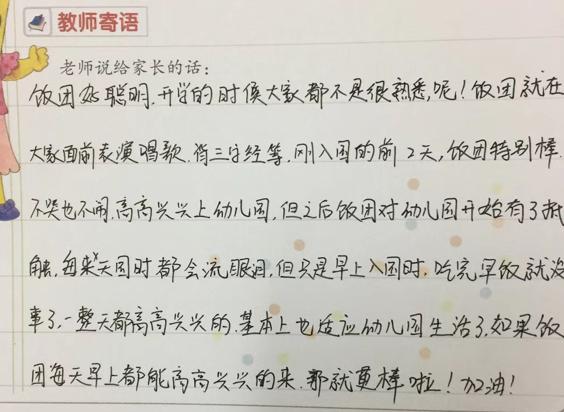 教师寄语
老师说给家长的话：
饭团好聪明,开学的时候大家都不是很熟悉,呢！饭团就在
大家面前表演唱歌.背三字经等.刚入园的前2天,饭团特别棒.
不哭也不闹,高高兴兴上幼儿园,但之后饭团对幼儿园开始有了抵
触,每来天园时都会流眼泪,但只是早上入园时.吃完早饭就没
事了.一整天都高高兴兴的.基本上也适应幼儿园生活了.如果饭
团每天早上都能高高兴兴的来.那就更棒啦！加油！